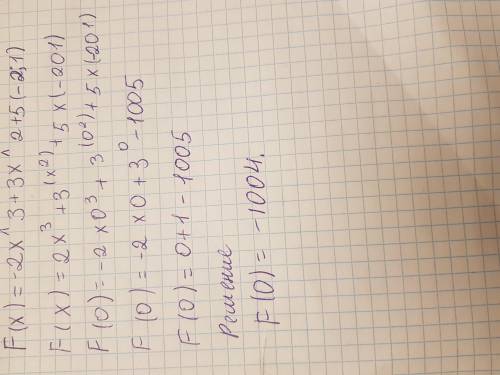 F(x) = -2x^3+3x^2+5(-2;1)
F(x) = 2x³+3^(x²)+5x(-201)
F(0) = -2x0³+3^(0²)+5x(-201)
F(0) = -2x0+3⁰-1005
F(0) = 0+1-1005
Решение
F(0) = -1004.